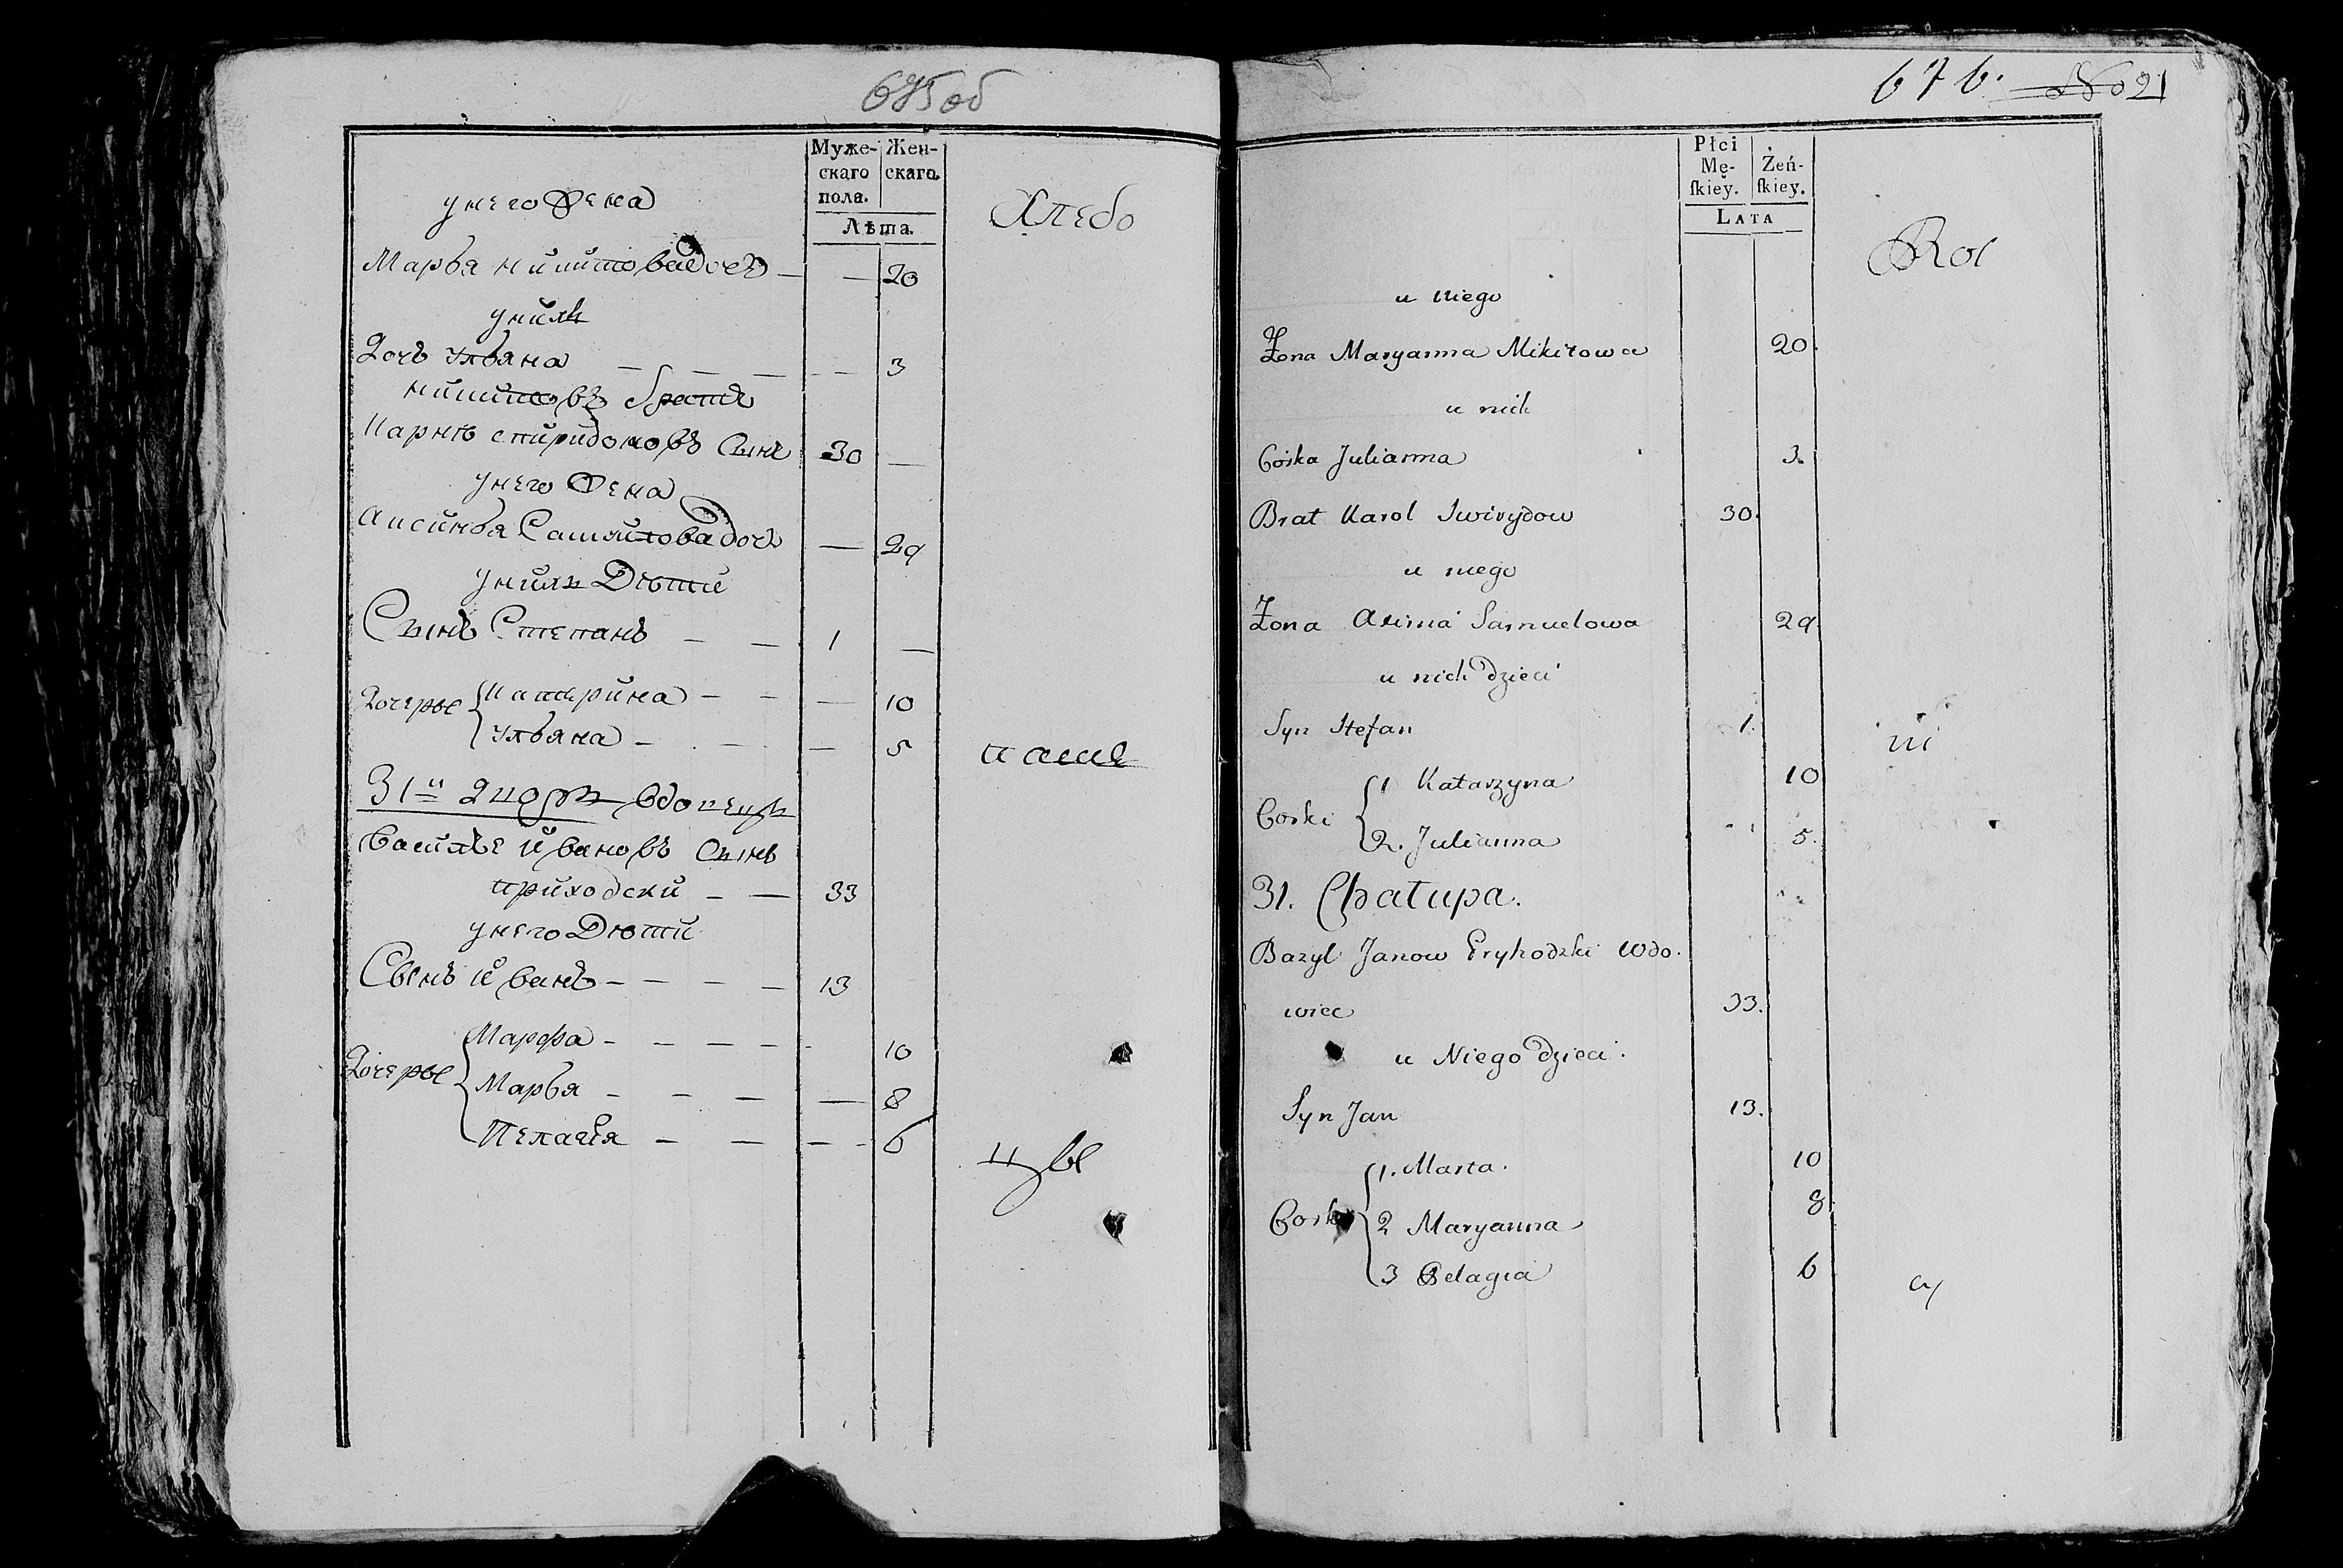 675 об
Муже-
скаго
пола.
Жен-
скаго.
Лѣта.
у него жена
Хлебо
Марья никитова дочь — — 20
у них
Дочь Ульяна — — — — 3
никитовъ братъ
Карнѣ спиридоновъ Сынъ 30 —
у него жена
Аксинья Самуйлова дочь — 29
у них Дѣти
Сынъ Степанъ — — 1 —
Дочеры
Катерина — — — 10
Ульяна — — — 5
паше
31й Дворъ вдовецъ
Василье Ивановъ Сынъ
приходски — — 33
у него Дѣти
Сынъ Иванъ — — — — 13
Дочеры
Марфа — — — — 10
Марья — — — — 8
Пелагѣя — — — — 6
цы
676. No 21
Płci
Mę-
ſkiey.
Żeń-
ſkiey.
LATA
Rol
u niego
Żona Maryanna Mikitowa 20.
u nich
Córka Julianna 3.
Brat Karol Swirydow 30.
u niego
Żona Axinia Samuelowa 29.
u nich dzieci
Syn Stefan 1.
ni
Corki
1 Katarzyna 10
2. Julianna 5.
31. Chałupa.
Bazyl Janow Pryhodzki Wdo-
wiec 33.
u Niego dzieci.
Syn Jan 13.
Corki
1. Marta. 10
2 Maryanna 8
3 Pelagia 6
cy